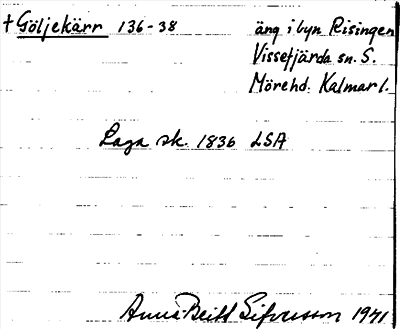 + Göljekärr 136-38 äng i byn Risingen
Vissefjärda sn. S.
Möre hd. Kalmar l.
Laga sk. 1836 LSA
Anna-Britt Sifvesson 1971